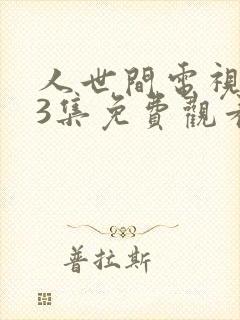 人世間電視
3集免費觀看
普拉斯